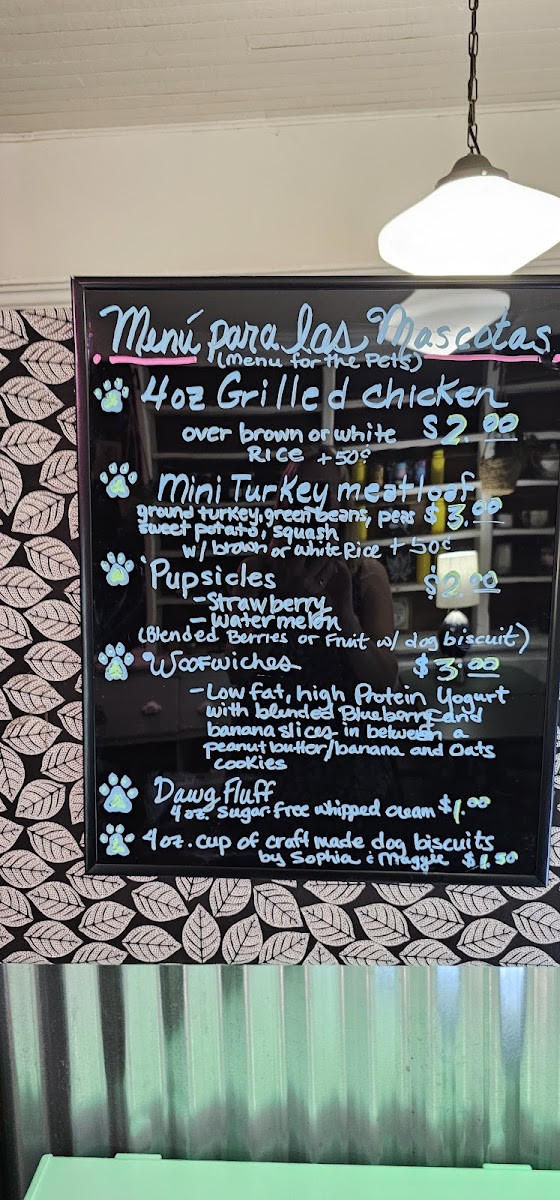 Menú para las Mascotas
(Menu for the Pets)
4oz Grilled chicken
over brown or white $2.00
Rice +50¢
Mini Turkey meatloaf
ground turkey, green beans, peas $3.00
sweet potato, squash
w/ brown or white Rice + 50¢
Pupsicles $2.00
- Strawberry
- Watermelon
(Blended Berries or Fruit w/ dog biscuit)
Woofwiches $3.00
- Low fat, high Protein Yogurt
with blended Blueberry and
banana slices in between a
peanut butter/banana and Oats
cookies
Dawg Fluff
4oz. sugar free whipped cream $1.00
4oz. cup of craft made dog biscuits
by Sophia & Maggie $1.50